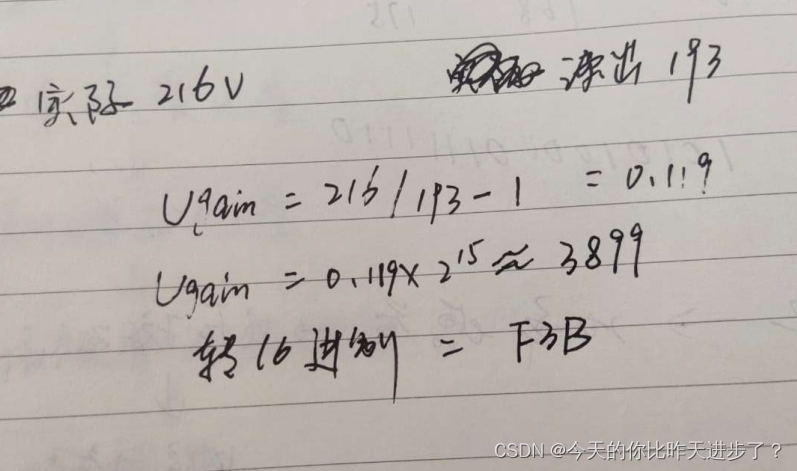 实际 216V 读出 193
Ugain = 216 / 193 - 1 = 0.119
Ugain = 0.119 × 2¹⁵ ≈ 3899
转16进制 = F3B
CSDN @今天的你比昨天进步了？